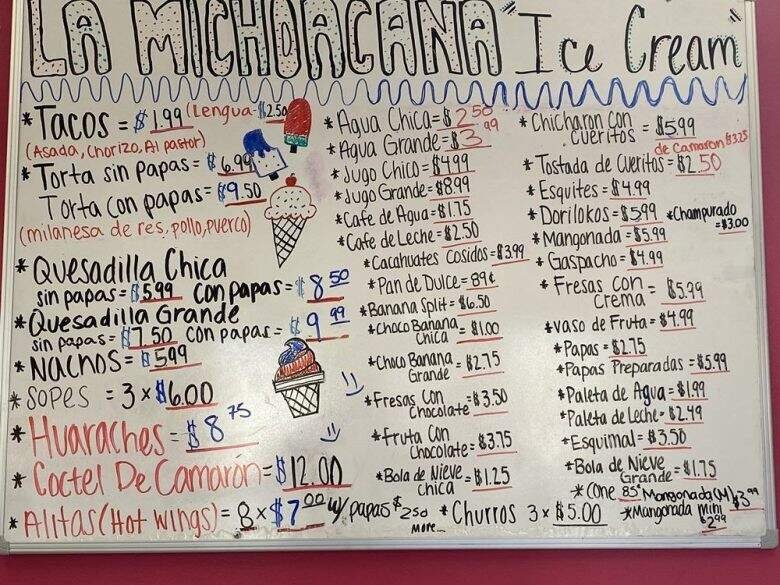 LA MICHOACANA "Ice Cream"
*Tacos = $1.99 (Lengua-$2.50)
(Asada, Chorizo, Al pastor)
*Torta sin papas = $6.99
Torta con papas = $9.50
(milanesa de res, pollo, puerco)
*Quesadilla Chica
sin papas = $5.99 con papas = $8.50
*Quesadilla Grande
sin papas = $7.50 con papas = $9.99
*Nachos = $5.99
*Sopes = 3 x $6.00
*Huaraches = $8.75
*Coctel De Camarón = $12.00
*Alitas (Hot wings) = 8 x $7.00 w/ papas $2.50
more...
*Agua Chica = $2.50
*Agua Grande = $3.99
*Jugo Chico = $4.99
*Jugo Grande = $8.99
*Cafe de Agua = $1.75
*Cafe de Leche = $2.50
*Cacahuates Cosidos = $3.99
*Pan de Dulce = 89¢
*Banana Split = $6.50
*Choco Banana
Chica = $1.00
*Choco Banana
Grande = $2.75
*Fresas Con
Chocolate = $3.50
*Fruta Con
Chocolate = $3.75
*Bola de Nieve
Chica = $1.25
*Churros 3 x $5.00
*Chicharon con
Cueritos = $5.99
de Camaron $3.25
*Tostada de Cueritos = $2.50
*Esquites = $4.99
*Dorilokos = $5.99
*Champurado
= $3.00
*Mangonada = $5.99
*Gaspacho = $4.99
*Fresas Con
Crema = $5.99
*Vaso de Fruta = $4.99
*Papas = $2.75
*Papas Preparadas = $5.99
*Paleta de Agua = $1.99
*Paleta de Leche = $2.49
*Esquimal = $3.50
*Bola de Nieve
Grande = $1.75
*Cone 85¢ Mangonada(M) $3.99
*Mangonada mini
$2.99